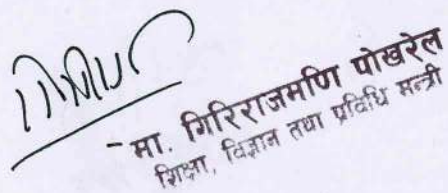 -मा. गिरिराजमणि पोखरेल
शिक्षा, विज्ञान तथा प्रविधि मन्त्री